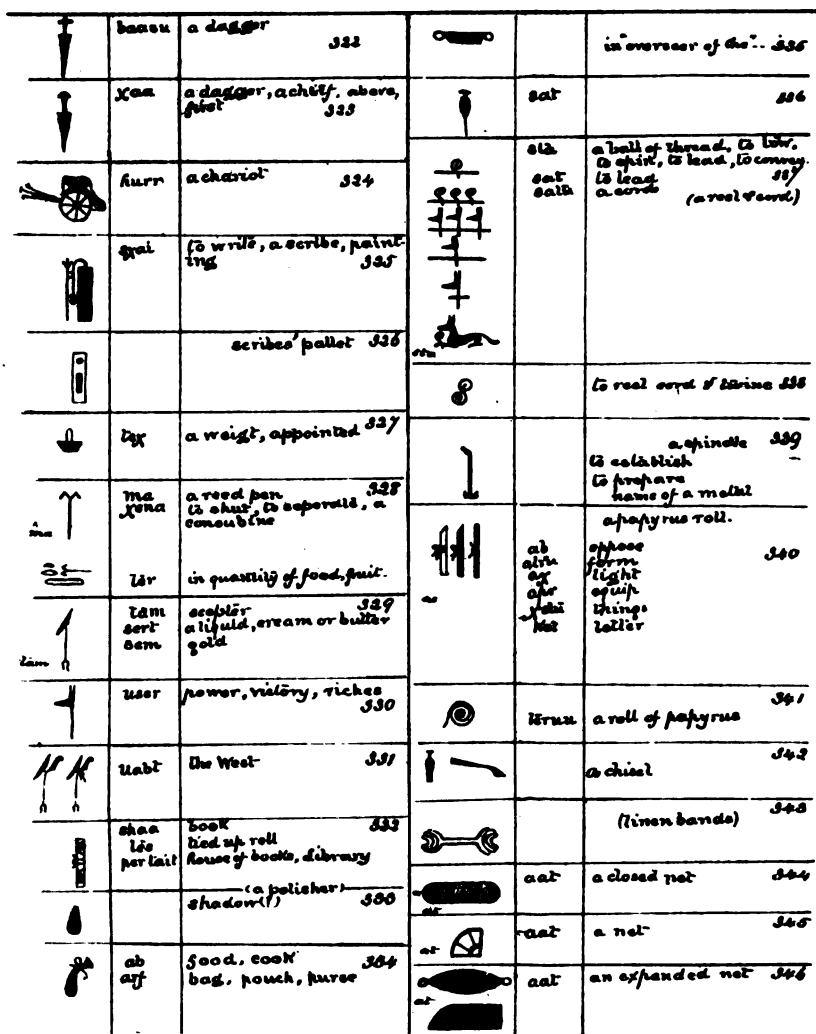 baasu a dagger
322
χaa a dagger, a chief, above,
first 323
hurr a chariot 324
to write, a scribe, paint-
ing 325
scribes' pallet 326
teχ a weigt, appointed 327
ma a reed pen 328
χena to shut, to seperate, a
concubine
ter in quantity of food, fruit.
tam scepter 329
sert a liquid, cream or butter
sem gold
tam
user power, victory, riches
330
uabt the West 331
shaa book 332
tes tied up roll
per tait house of books, Library
(a polisher)
shadow(?) 333
ab food, cook 334
arf bag, pouch, purse
in "overseer of the".. 335
sat 336
sta a ball of thread, to tow,
to spin, to lead, to convey.
sat to lead 337
satu a cord (a reel & cord)
to reel cord & twine 338
a spindle 339
to establish
to prepare
name of a metal
a papyrus roll.
ab oppose 340
form
aχ light
apr equip
things
letter
341
a roll of papyrus
342
a chisel
343
(linen bands)
aat a closed net 344
aat a net 345
at
aat an expanded net 346
at